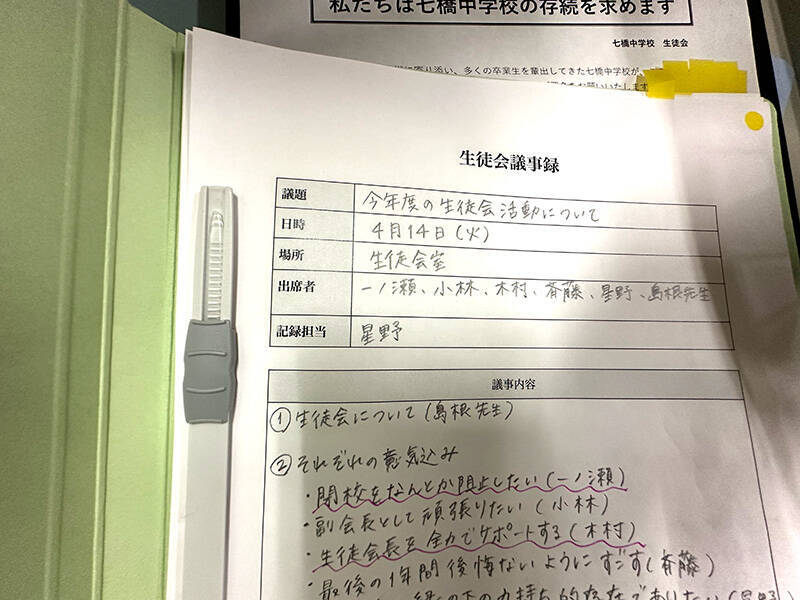 私たちは七橋中学校の存続を求めます
七橋中学校 生徒会
り添い、多くの卒業生を輩出してきた七橋中学校が、
いいたします
生徒会議事録
議題 今年度の生徒会活動について
日時 4月14日(火)
場所 生徒会室
出席者 一ノ瀬、小林、木村、斉藤、星野、島根先生
記録担当 星野
議事内容
① 生徒会について(島根先生)
② それぞれの意気込み
・閉校をなんとか阻止したい(一ノ瀬)
・副会長として頑張りたい(小林)
・生徒会長を全力でサポートする(木村)
・最後の1年間後悔ないようにすごす(斉藤)
縁の下の力持ち的存在でありたい(星野)